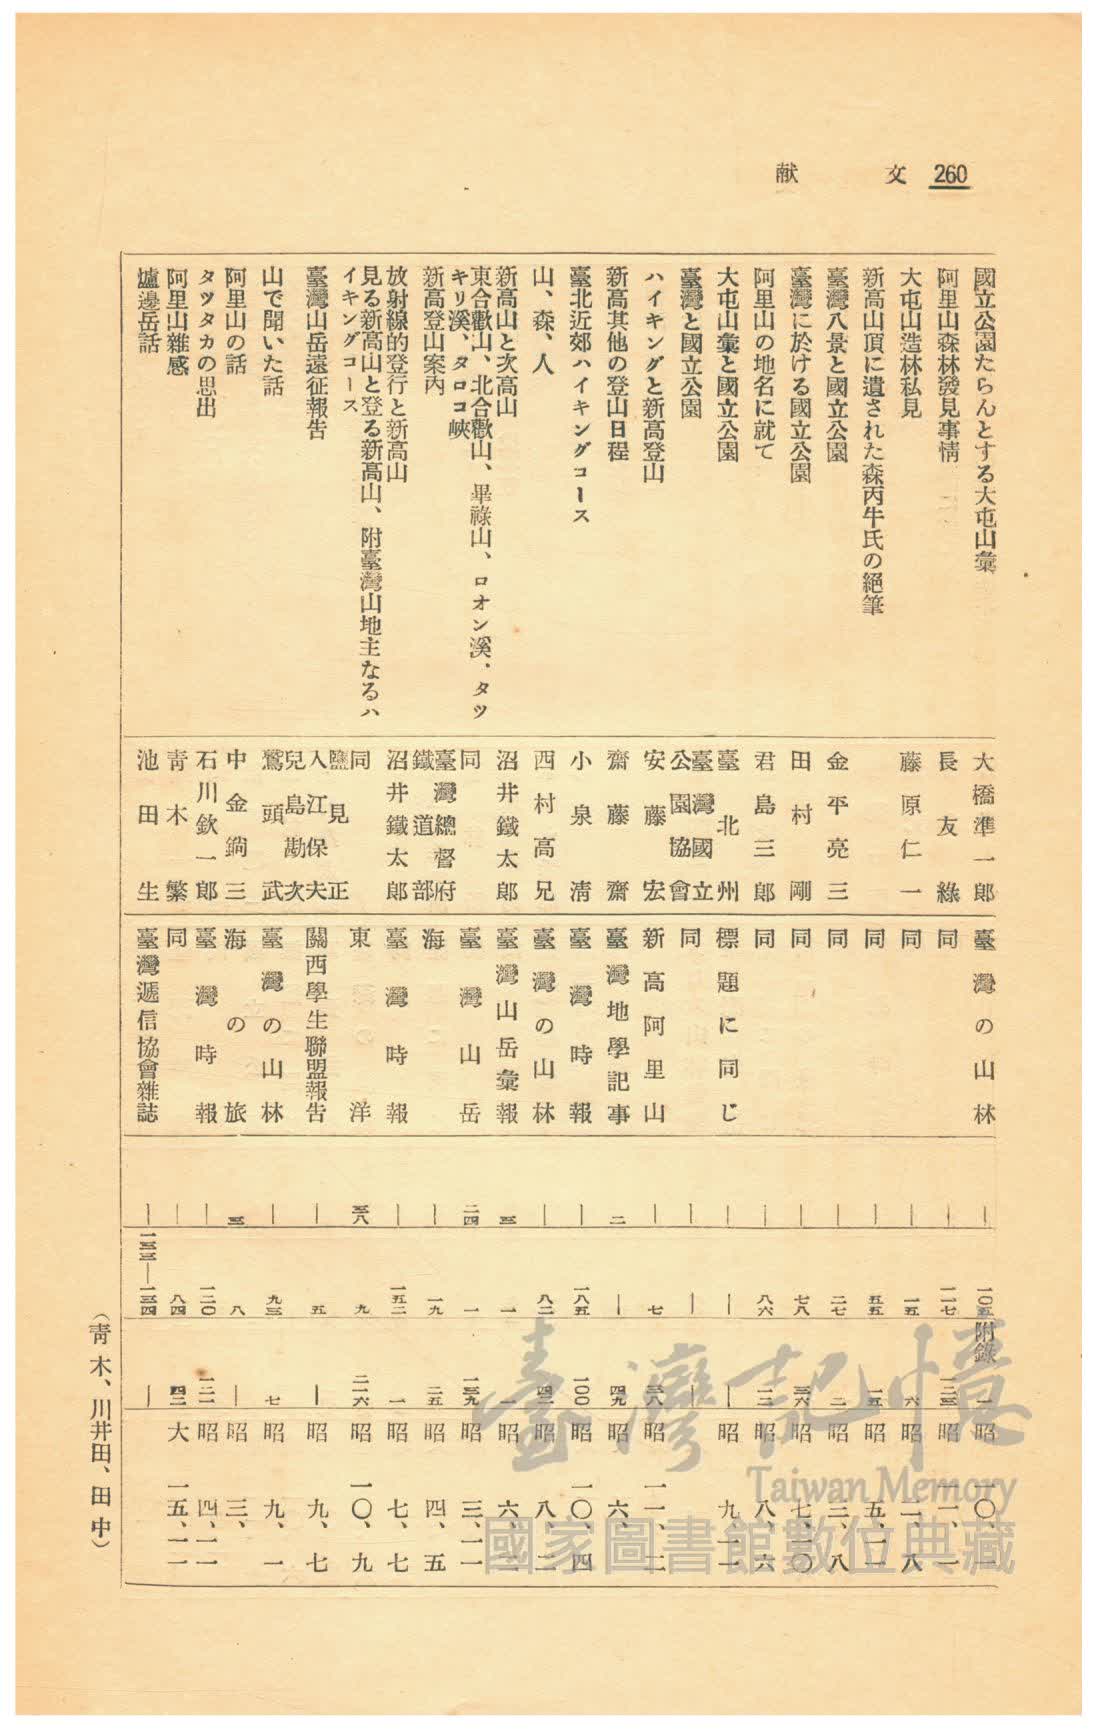 260 文献
國立公園たらんとする大屯山彙 大橋準一郎 臺灣の山林 ― 一〇五附錄 一 昭 一〇、一
阿里山森林發見事情 長友綠 同 ― 一一七 一二三 昭 一一、一
大屯山造林私見 藤原仁一 同 ― 一五 六 昭 二、八
新高山頂に遺された森丙牛氏の絕筆 同 ― 五五 一五 昭 五、一一
臺灣八景と國立公園 金平亮三 同 ― 二七 二 昭 三、八
臺灣に於ける國立公園 田村剛 同 ― 七八 三六 昭 七、一〇
阿里山の地名に就て 君島三郎 同 ― 八六 一二 昭 八、六
大屯山彙と國立公園 臺北州 標題に同じ ― ― ― 昭 九、一一
臺灣と國立公園 臺灣國立公園協會 同 ―
ハイキングと新高登山 安藤宏 新高阿里山 ― 七 三八 昭 一一、二
新高其他の登山日程 齋藤齋 臺灣地學記事 二 ― 四九 昭 六、
臺北近郊ハイキングコース 小泉淸 臺灣時報 ― 一八五 一〇〇 昭 一〇、四
山、森、人 西村高兄 臺灣の山林 ― 八二 四二 昭 八、二
新高山と次高山 沼井鐵太郎 臺灣山岳彙報 三 一 一 昭 六、二
東合歡山、北合歡山、畢祿山、ロオン溪、タツ
キリ溪、タロコ峽 同 臺灣山岳 二四 一 一三九 昭 三、一一
新高登山案內 臺灣總督府鐵道部 海 ― 一九 二五 昭 四、五
放射線的登行と新高山 沼井鐵太郎 臺灣時報 ― 一五二 一 昭 七、七
見る新高山と登る新高山、附臺灣山地主なるハ
イキングコース 同 東洋 三八 九 二一六 昭 一〇、九
臺灣山岳遠征報告 鹽見正 入江保夫 兒島勘次 關西學生聯盟報告 ― 五 ― 昭 九、七
山で聞いた話 鷲頭武 臺灣の山林 ― 九三 七 昭 九、一
阿里山の話 中金鋿三 海の旅 三 八 ― 昭 三、
タツタカの思出 石川欽一郎 臺灣時報 ― 一二〇 一二一 昭 四、一一
阿里山雜感 靑木繁 同 ― 八四 四二 大 一五、一一
爐邊岳話 池田生 臺灣遞信協會雜誌 ― 一三三―一三四 ―
(靑木、川井田、田中)
臺灣記憶
Taiwan Memory
國家圖書館數位典藏